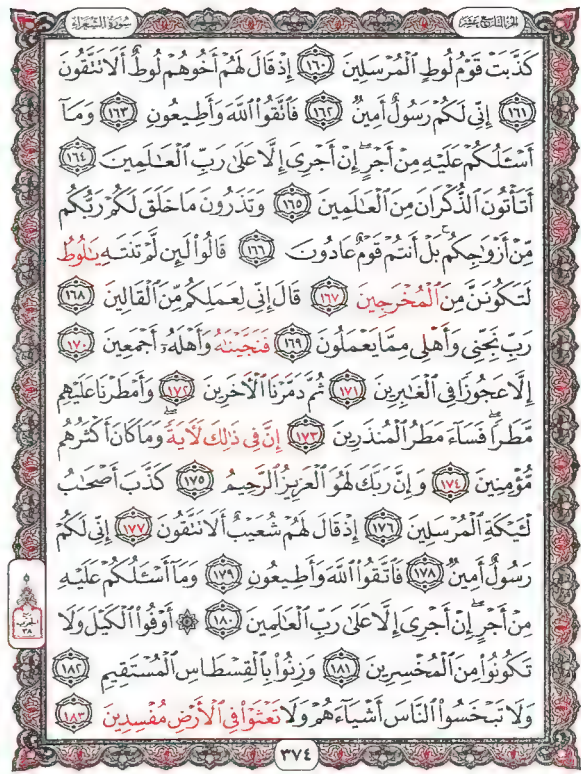 سورة الشعراء
الجزء التاسع عشر
كَذَّبَتْ قَوْمُ لُوطٍ ٱلْمُرْسَلِينَ ١٦٠ إِذْ قَالَ لَهُمْ أَخُوهُمْ لُوطٌ أَلَا تَتَّقُونَ
١٦١ إِنِّى لَكُمْ رَسُولٌ أَمِينٌ ١٦٢ فَٱتَّقُوا۟ ٱللَّهَ وَأَطِيعُونِ ١٦٣ وَمَآ
أَسْـَٔلُكُمْ عَلَيْهِ مِنْ أَجْرٍ ۖ إِنْ أَجْرِىَ إِلَّا عَلَىٰ رَبِّ ٱلْعَـٰلَمِينَ ١٦٤
أَتَأْتُونَ ٱلذُّكْرَانَ مِنَ ٱلْعَـٰلَمِينَ ١٦٥ وَتَذَرُونَ مَا خَلَقَ لَكُمْ رَبُّكُم
مِّنْ أَزْوَٰجِكُم ۚ بَلْ أَنتُمْ قَوْمٌ عَادُونَ ١٦٦ قَالُوا۟ لَئِن لَّمْ تَنتَهِ يَـٰلُوطُ
لَتَكُونَنَّ مِنَ ٱلْمُخْرَجِينَ ١٦٧ قَالَ إِنِّى لِعَمَلِكُم مِّنَ ٱلْقَالِينَ ١٦٨
رَبِّ نَجِّنِى وَأَهْلِى مِمَّا يَعْمَلُونَ ١٦٩ فَنَجَّيْنَـٰهُ وَأَهْلَهُۥٓ أَجْمَعِينَ ١٧٠
إِلَّا عَجُوزًا فِى ٱلْغَـٰبِرِينَ ١٧١ ثُمَّ دَمَّرْنَا ٱلْـَٔاخَرِينَ ١٧٢ وَأَمْطَرْنَا عَلَيْهِم
مَّطَرًا ۖ فَسَآءَ مَطَرُ ٱلْمُنذَرِينَ ١٧٣ إِنَّ فِى ذَٰلِكَ لَـَٔايَةً ۖ وَمَا كَانَ أَكْثَرُهُم
مُّؤْمِنِينَ ١٧٤ وَإِنَّ رَبَّكَ لَهُوَ ٱلْعَزِيزُ ٱلرَّحِيمُ ١٧٥ كَذَّبَ أَصْحَـٰبُ
لْـَٔيْكَةِ ٱلْمُرْسَلِينَ ١٧٦ إِذْ قَالَ لَهُمْ شُعَيْبٌ أَلَا تَتَّقُونَ ١٧٧ إِنِّى لَكُمْ
رَسُولٌ أَمِينٌ ١٧٨ فَٱتَّقُوا۟ ٱللَّهَ وَأَطِيعُونِ ١٧٩ وَمَآ أَسْـَٔلُكُمْ عَلَيْهِ
مِنْ أَجْرٍ ۖ إِنْ أَجْرِىَ إِلَّا عَلَىٰ رَبِّ ٱلْعَـٰلَمِينَ ١٨٠ ۞ أَوْفُوا۟ ٱلْكَيْلَ وَلَا
تَكُونُوا۟ مِنَ ٱلْمُخْسِرِينَ ١٨١ وَزِنُوا۟ بِٱلْقِسْطَاسِ ٱلْمُسْتَقِيمِ ١٨٢
وَلَا تَبْخَسُوا۟ ٱلنَّاسَ أَشْيَآءَهُمْ وَلَا تَعْثَوْا۟ فِى ٱلْأَرْضِ مُفْسِدِينَ ١٨٣
٣٨
٣٧٤